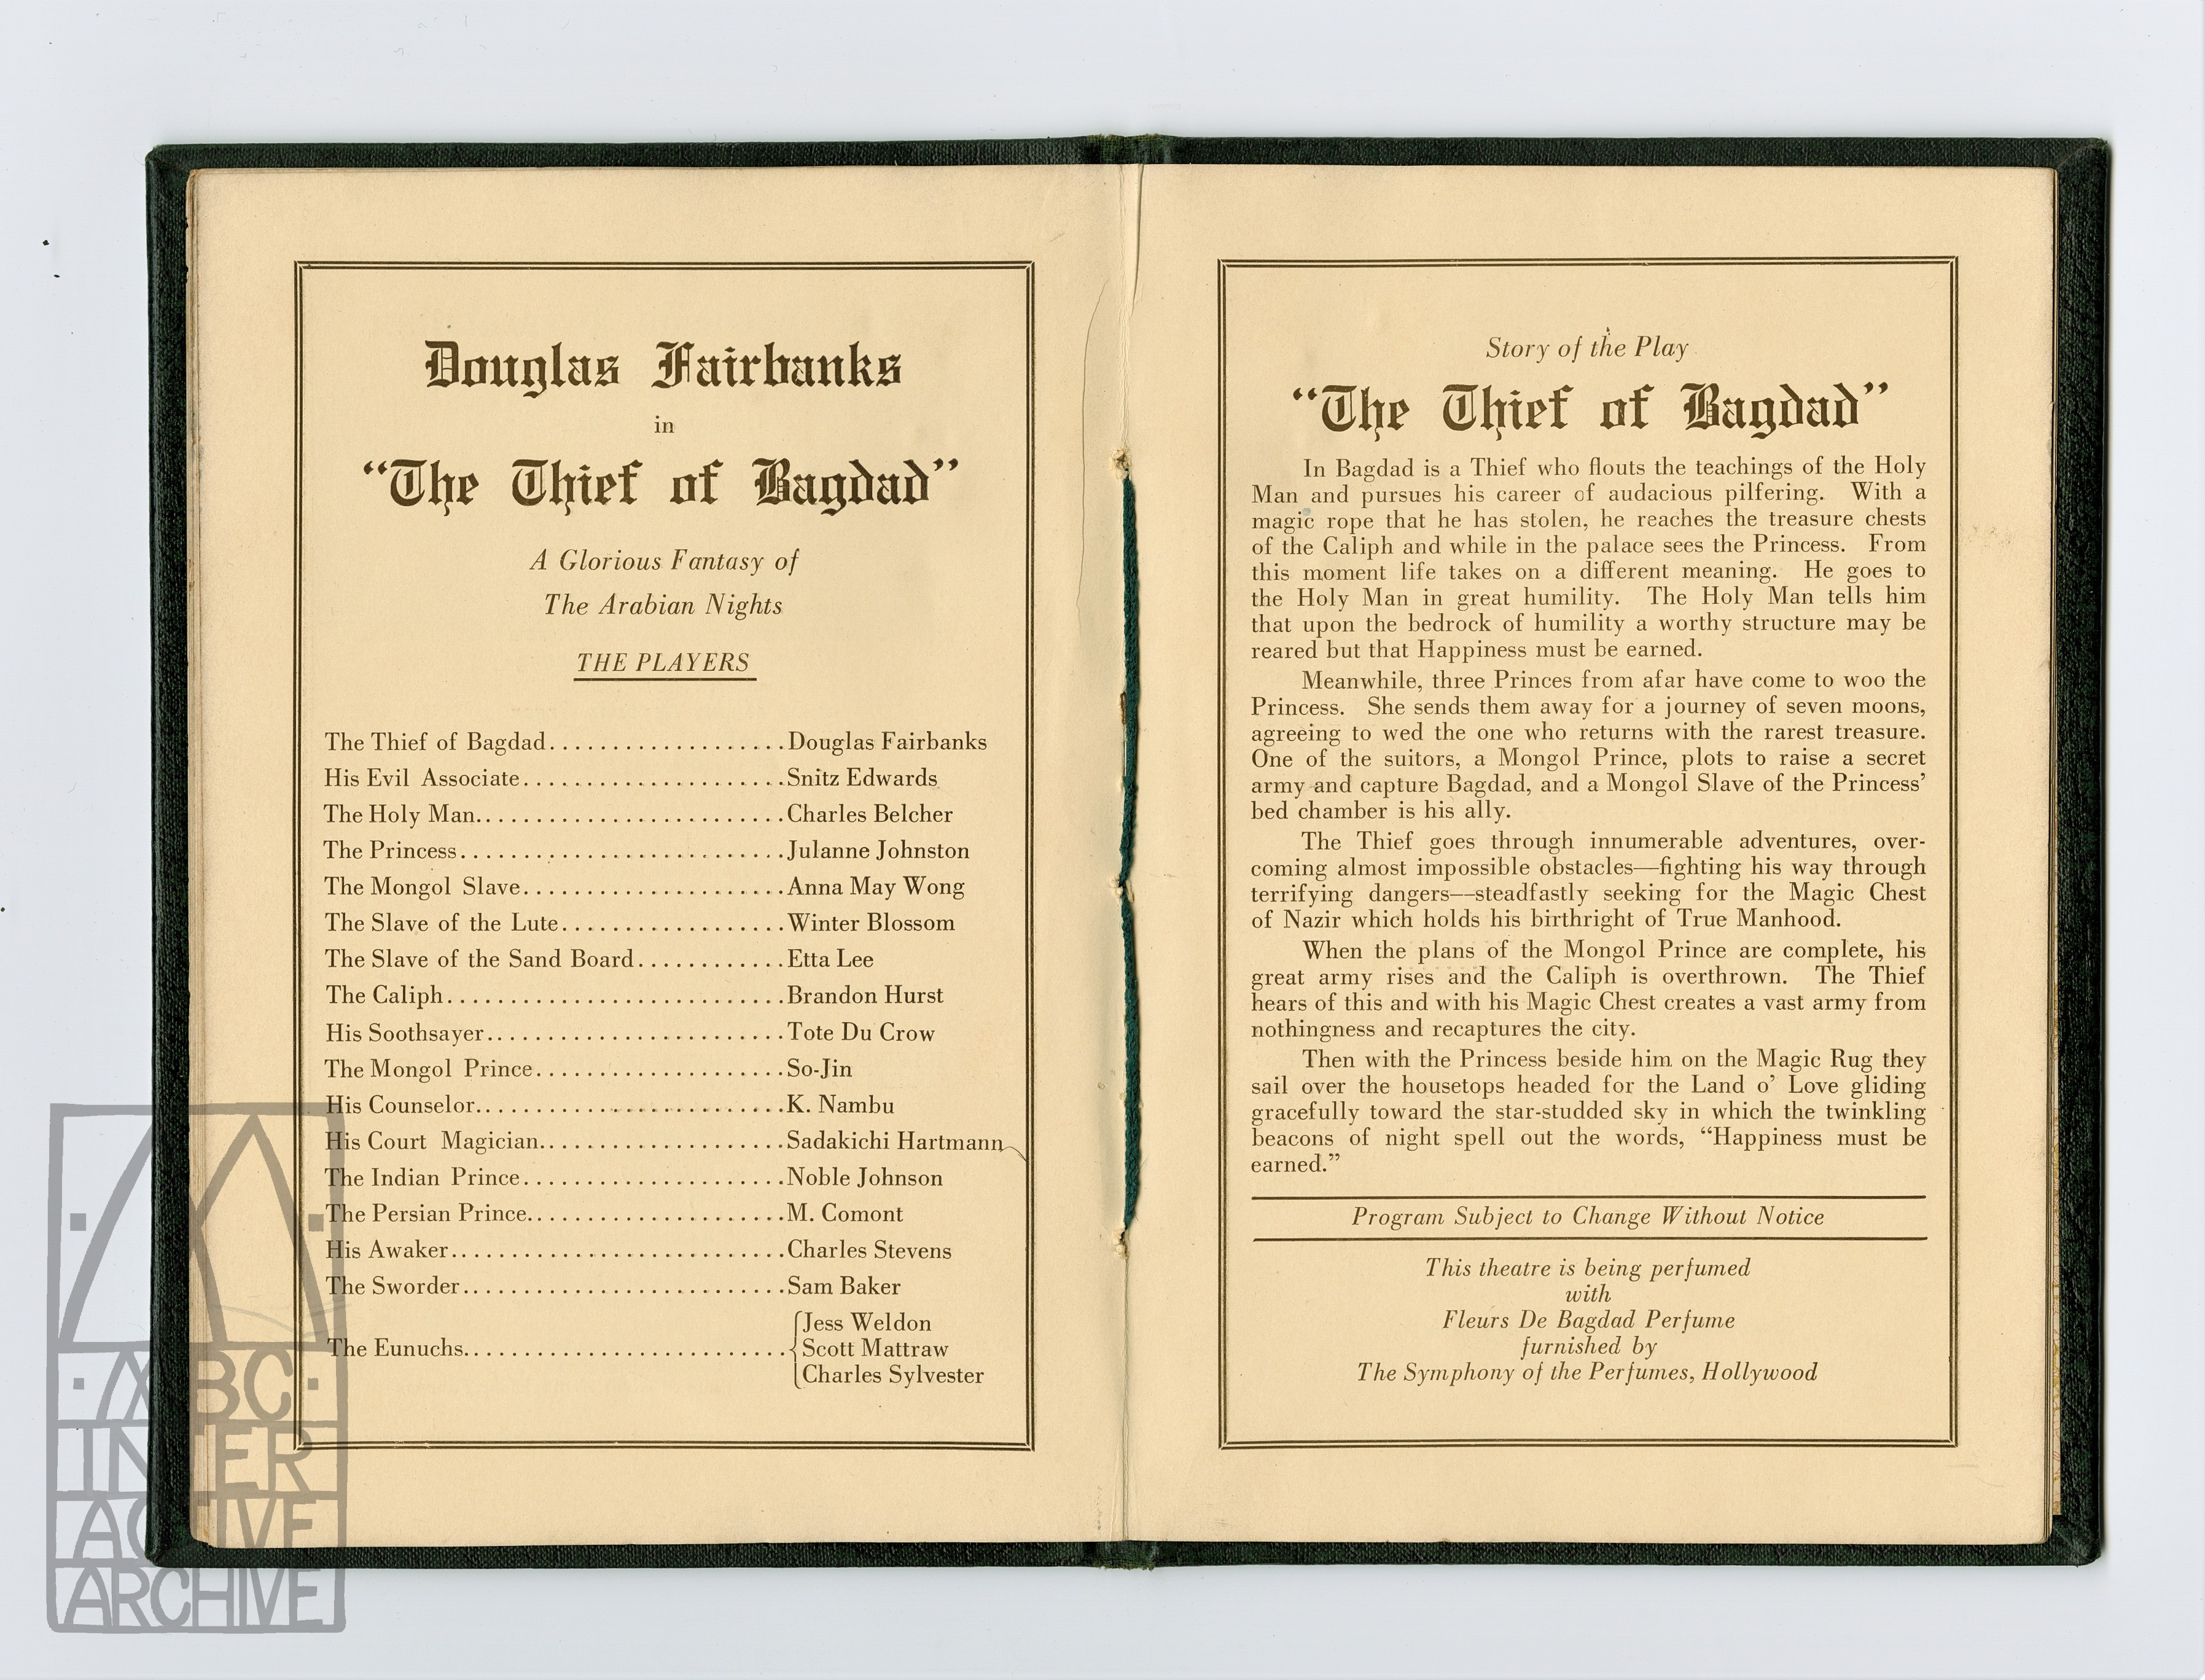 Douglas Fairbanks
in
“The Thief of Bagdad”
A Glorious Fantasy of
The Arabian Nights
THE PLAYERS
The Thief of Bagdad....................Douglas Fairbanks
His Evil Associate......................Snitz Edwards
The Holy Man..........................Charles Belcher
The Princess............................Julanne Johnston
The Mongol Slave......................Anna May Wong
The Slave of the Lute...................Winter Blossom
The Slave of the Sand Board............Etta Lee
The Caliph.............................Brandon Hurst
His Soothsayer.........................Tote Du Crow
The Mongol Prince.....................So-Jin
His Counselor..........................K. Nambu
His Court Magician.....................Sadakichi Hartmann
The Indian Prince......................Noble Johnson
The Persian Prince......................M. Comont
His Awaker............................Charles Stevens
The Sworder...........................Sam Baker
The Eunuchs...........................{Jess Weldon
Scott Mattraw
Charles Sylvester
Story of the Play
“The Thief of Bagdad”
In Bagdad is a Thief who flouts the teachings of the Holy
Man and pursues his career of audacious pilfering. With a
magic rope that he has stolen, he reaches the treasure chests
of the Caliph and while in the palace sees the Princess. From
this moment life takes on a different meaning. He goes to
the Holy Man in great humility. The Holy Man tells him
that upon the bedrock of humility a worthy structure may be
reared but that Happiness must be earned.
Meanwhile, three Princes from afar have come to woo the
Princess. She sends them away for a journey of seven moons,
agreeing to wed the one who returns with the rarest treasure.
One of the suitors, a Mongol Prince, plots to raise a secret
army and capture Bagdad, and a Mongol Slave of the Princess’
bed chamber is his ally.
The Thief goes through innumerable adventures, over-
coming almost impossible obstacles—fighting his way through
terrifying dangers—steadfastly seeking for the Magic Chest
of Nazir which holds his birthright of True Manhood.
When the plans of the Mongol Prince are complete, his
great army rises and the Caliph is overthrown. The Thief
hears of this and with his Magic Chest creates a vast army from
nothingness and recaptures the city.
Then with the Princess beside him on the Magic Rug they
sail over the housetops headed for the Land o’ Love gliding
gracefully toward the star-studded sky in which the twinkling
beacons of night spell out the words, “Happiness must be
earned.”
Program Subject to Change Without Notice
This theatre is being perfumed
with
Fleurs De Bagdad Perfume
furnished by
The Symphony of the Perfumes, Hollywood
·ABC·
INTER
ACTIVE
ARCHIVE